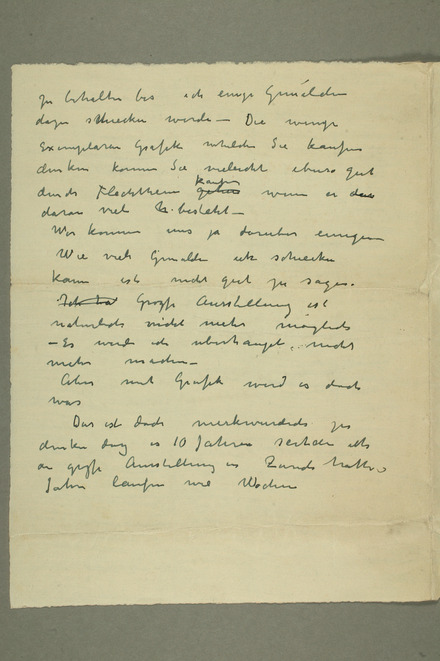 zu behalten bis ich einige Gemälden
dazu schicken werde — Die wenige
Exemplaren Grafik welche Sie kaufen
denken können Sie vieleicht ebenso gut
durch Flechtheim kaufen wenn er
daran viel besteht —
Wir können uns ja darüber einigen
Wie viele Gemälden ich schicken
kann ist nicht gut zu sagen.
Ich ha Grosse Ausstellung ist
naturlich nicht mehr möglich
— Es werde ich uberhaupt nicht
mehr machen —
Aber mit Grafik wird es doch
was
Das ist doch merkwurdich zu
denken das es 10 Jahren seitdem ich
die grosse Ausstellung in Zurich hatte
Jahre laufen wie Wochen